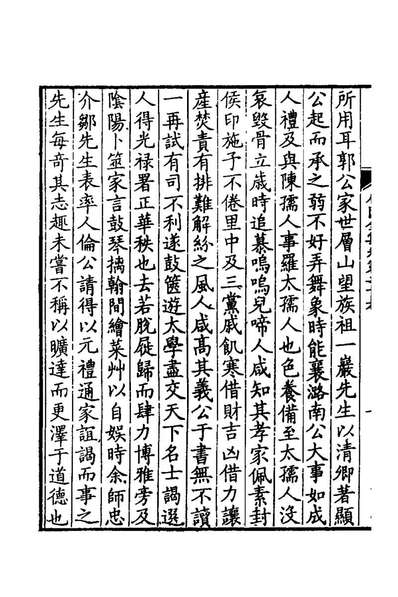 所用耳郭公家世層山望族祖一巖先生以清卿著顯
公起而承之弱不好弄舞象時能襄潞南公大事如成
人禮及與陳孺人事羅太孺人也色養備至太孺人沒
哀毀骨立歲時追慕嗚嗚兒啼人咸知其孝家佩素封
侯印施予不倦里中及三黨戚飢寒借財吉凶借力讓
產焚責有排難解紛之風人咸高其義公于書無不讀
一再試有司不利遂鼓篋遊太學盡交天下名士謁選
人得光祿署正華秩也去若脫屣歸而肆力博雅旁及
陰陽卜筮家言鼓琴摛翰間繪菜艸以自娛時余師忠
介鄒先生表率人倫公請得以元禮通家誼謁而事之
先生每奇其志趣未嘗不稱以曠達而更澤于道德也